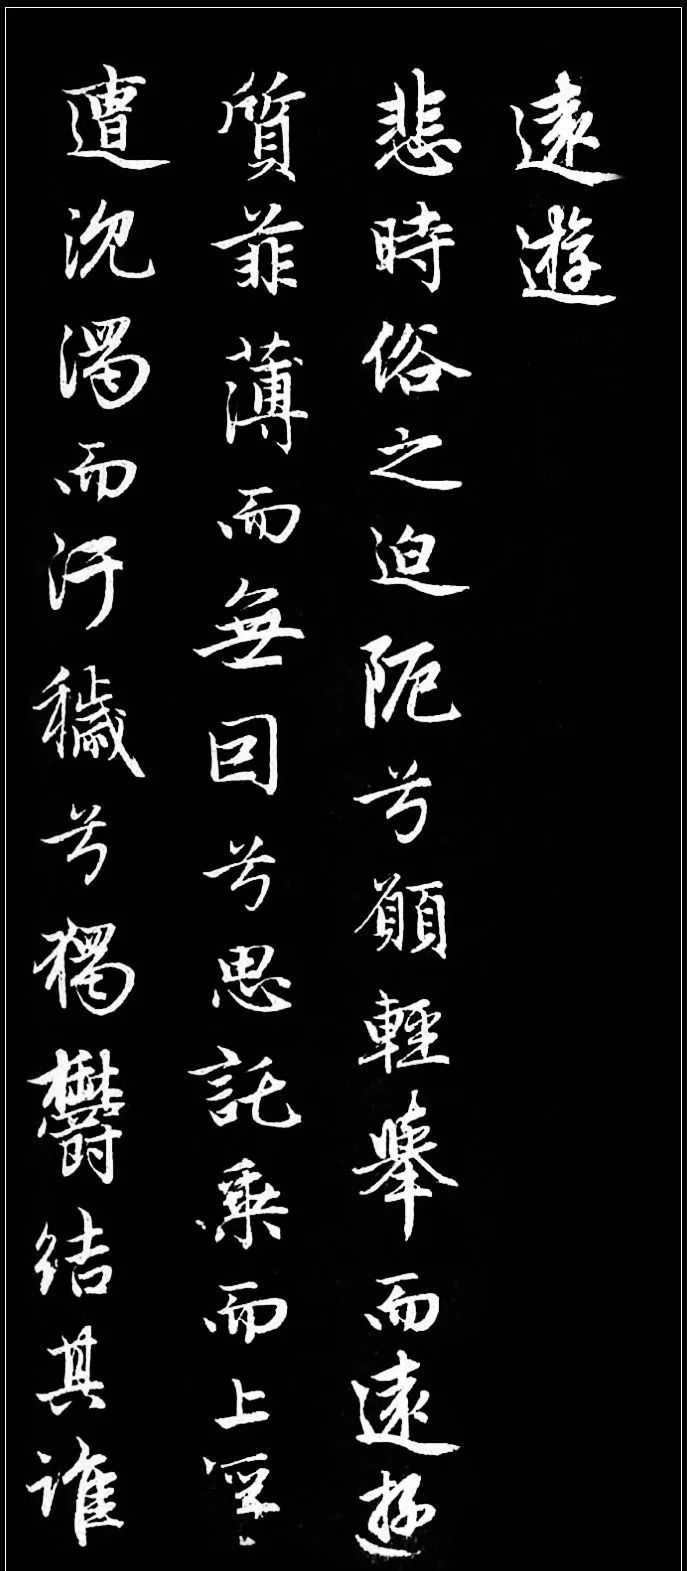 遠遊
悲時俗之迫阨兮願輕舉而遠遊
質菲薄而無因兮思託乘而上浮
遭沈濁而汙穢兮獨鬱結其誰